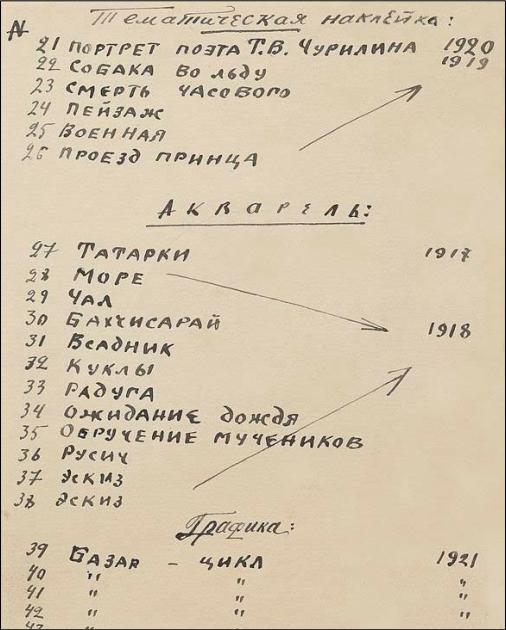 N Тематическая наклейка:
21 ПОРТРЕТ ПОЭТА Т.В. ЧУРИЛИНА 1920
22 СОБАКА ВО ЛЬДУ 1919
23 СМЕРТЬ ЧАСОВОГО
24 ПЕЙЗАЖ
25 ВОЕННАЯ
26 ПРОЕЗД ПРИНЦА
АКВАРЕЛЬ:
27 ТАТАРКИ 1917
28 МОРЕ
29 ЧАЛ
30 БАХЧИСАРАЙ 1918
31 ВСАДНИК
32 КУКЛЫ
33 РАДУГА
34 ОЖИДАНИЕ ДОЖДЯ
35 ОБРУЧЕНИЕ МУЧЕНИКОВ
36 РУСИЧ
37 ЭСКИЗ
38 ЭСКИЗ
Графика:
39 БАЗАР - ЦИКЛ 1921
40 " " "
41 " " "
42 " " "